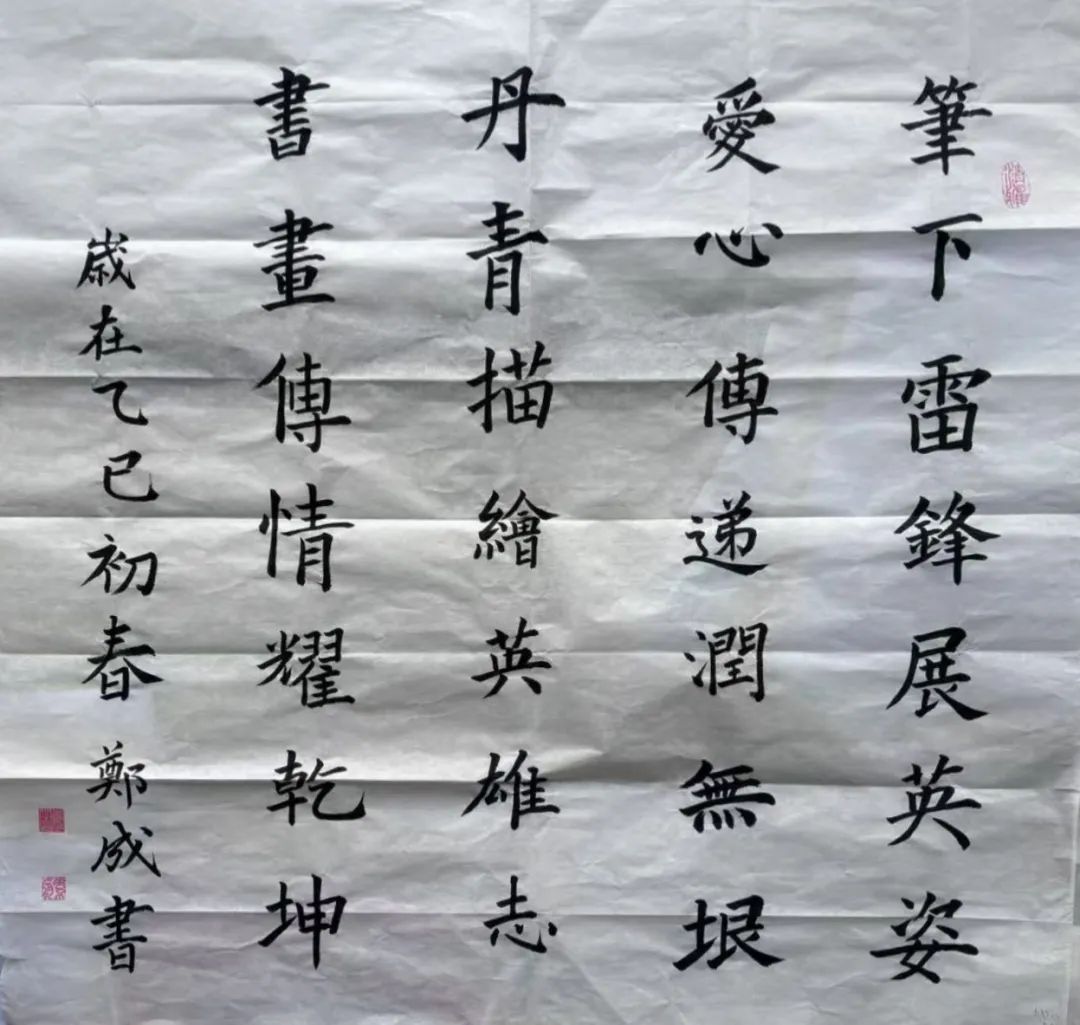 筆下雷鋒展英姿
愛心傳遞潤無垠
丹青描繪英雄志
書畫傳情耀乾坤
歲在乙巳初春 鄭成書